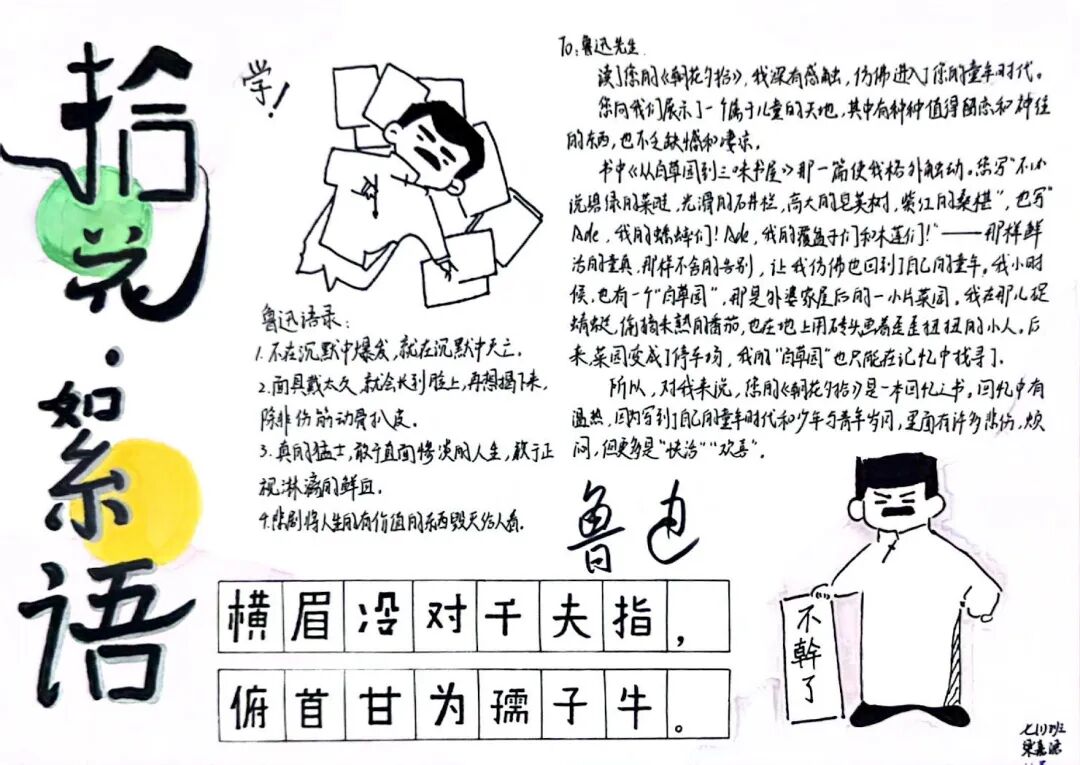 拾花·絮语
学！
鲁迅语录：
1.不在沉默中爆发，就在沉默中灭亡。
2.面具戴太久，就会长到脸上，再想揭下来，
除非伤筋动骨扒皮。
3.真的猛士，敢于直面惨淡的人生，敢于正
视淋漓的鲜血。
4.悲剧将人生的有价值的东西毁灭给人看。
To：鲁迅先生
读了您的《朝花夕拾》，我深有感触，仿佛进入了您的童年时代。
您向我们展示了一个属于儿童的天地，其中有种种值得留恋和神往
的东西，也不乏缺憾和凄凉。
书中《从百草园到三味书屋》那一篇使我格外触动。您写“不必
说碧绿的菜畦，光滑的石井栏，高大的皂荚树，紫红的桑椹”，也写
“Ade，我的蟋蟀们！Ade，我的覆盆子们和木莲们！”——那样鲜
活的童真，那样不舍的告别，让我仿佛也回到了自己的童年。我小时
候，也有一个“百草园”，那是外婆家屋后的一小片菜园。我在那儿捉
蜻蜓，偷摘未熟的番茄，也在地上用砖头画着歪歪扭扭的小人。后
来，菜园变成了停车场，我的“百草园”也只能在记忆中找寻了。
所以，对我来说，您的《朝花夕拾》是一本回忆之书。回忆中有
温热，因为写到了自己的童年时代和少年与青年岁月，里面有许多悲伤，烦
闷，但更多是“快活”“欢喜”。
鲁迅
横眉冷对千夫指，
俯首甘为孺子牛。
不幹了
七(1)班
梁嘉